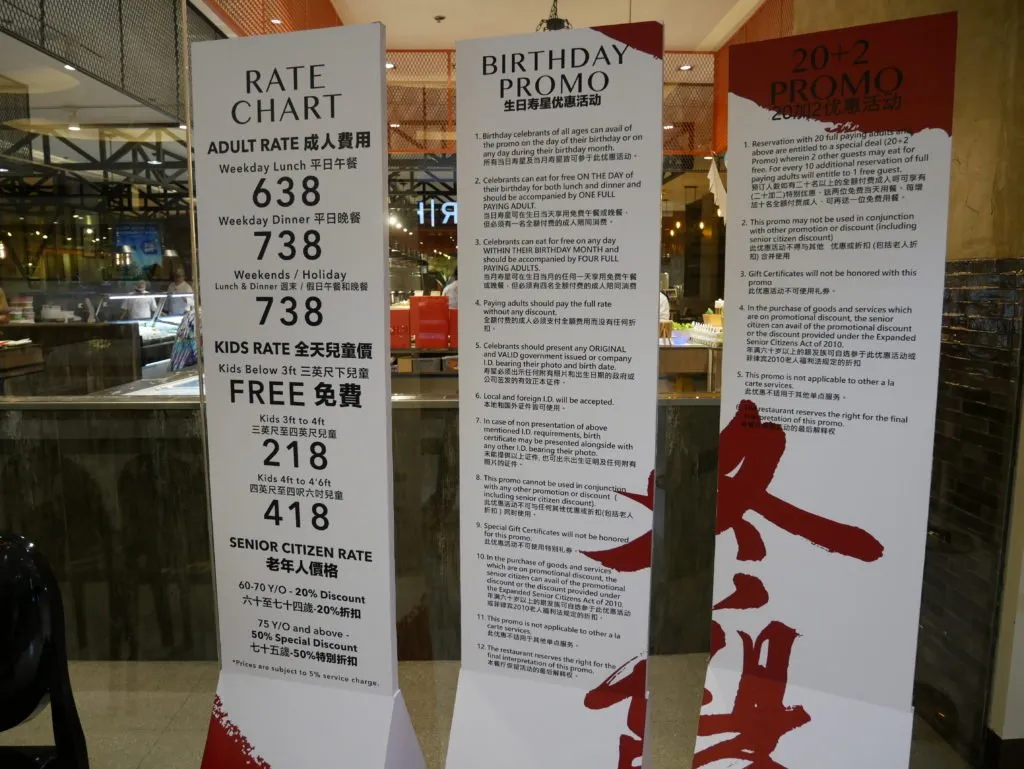 RATE
CHART
ADULT RATE 成人費用
Weekday Lunch 平日午餐
638
Weekday Dinner 平日晚餐
738
Weekends / Holiday
Lunch & Dinner 週末 / 假日午餐和晚餐
738
KIDS RATE 全天兒童價
Kids Below 3ft 三英尺下兒童
FREE 免費
Kids 3ft to 4ft
三英尺至四英尺兒童
218
Kids 4ft to 4'6ft
四英尺至四呎六吋兒童
418
SENIOR CITIZEN RATE
老年人價格
60-70 Y/O - 20% Discount
六十至七十四歲-20%折扣
75 Y/O and above -
50% Special Discount
七十五歲-50%特別折扣
*Prices are subject to 5% service charge.
BIRTHDAY
PROMO
生日寿星优惠活动
1. Birthday celebrants of all ages can avail of
the promo on the day of their birthday or on
any day during their birthday month.
所有当日寿星及当月寿星皆可参于此优惠活动。
2. Celebrants can eat for free ON THE DAY of
their birthday for both lunch and dinner and
should be accompanied by ONE FULL
PAYING ADULT.
当日寿星可在生日当天享用免费午餐或晚餐,
但必须有一名全额付费的成人陪同消费。
3. Celebrants can eat for free on any day
WITHIN THEIR BIRTHDAY MONTH and
should be accompanied by FOUR FULL
PAYING ADULTS.
当月寿星可在生日当月的任何一天享用免费午餐
或晚餐, 但必须有四名全额付费的成人陪同消费
4. Paying adults should pay the full rate
without any discount.
全额付费的成人必须支付全额费用而没有任何折
扣。
5. Celebrants should present any ORIGINAL
and VALID government issued or company
I.D. bearing their photo and birth date.
寿星必须出示任何附有照片和出生日期的政府或
公司签发的有效正本证件。
6. Local and foreign I.D. will be accepted.
本地和国外证件皆可使用。
7. In case of non presentation of above
mentioned I.D. requirements, birth
certificate may be presented alongside with
any other I.D. bearing their photo.
未能提供以上证件, 也可出示出生证明及任何附有
照片的证件。
8. This promo cannot be used in conjunction
with any other promotion or discount (
including senior citizen discount).
此优惠活动不可与任何其他优惠或折扣(包括老人
折扣 ) 同时使用。
9. Special Gift Certificates will not be honored
for this promo.
此优惠活动不可使用特别礼券。
10. In the purchase of goods and services
which are on promotional discount, the
senior citizen can avail of the promotional
discount or the discount provided under
the Expanded Senior Citizens Act of 2010.
年满六十岁以上的银发族可自选参于此优惠活动
或菲律宾2010老人福利法规定的折扣。
11. This promo is not applicable to other a la
carte services.
此优惠不适用于其他单点服务。
12. The restaurant reserves the right for the
final interpretation of this promo.
本餐厅保留活动的最后解释权。
20+2
PROMO
20加2优惠活动
1. Reservation with 20 full paying adults and
above are entitled to a special deal (20+2
Promo) wherein 2 other guests may eat for
free. For every 10 additional reservation of full
paying adults will entitle to 1 free guest.
预订人数如有二十名以上的全额付费成人将可享有
(二十加二)特别优惠, 送两位免费当天用餐。每增
加十名全额付费成人, 可再送一位免费用餐。
2. This promo may not be used in conjunction
with other promotion or discount (including
senior citizen discount)
此优惠活动不得与其他 优惠或折扣 (包括老人折
扣) 合并使用
3. Gift Certificates will not be honored with this
promo
此优惠活动不可使用礼券。
4. In the purchase of goods and services which
are on promotional discount, the senior
citizen can avail of the promotional discount
or the discount provided under the Expanded
Senior Citizens Act of 2010.
年满六十岁以上的银发族可自选参于此优惠活动或
菲律宾2010老人福利法规定的折扣
5. This promo is not applicable to other a la
carte services.
此优惠不适用于其他单点服务。
6. The restaurant reserves the right for the final
interpretation of this promo.